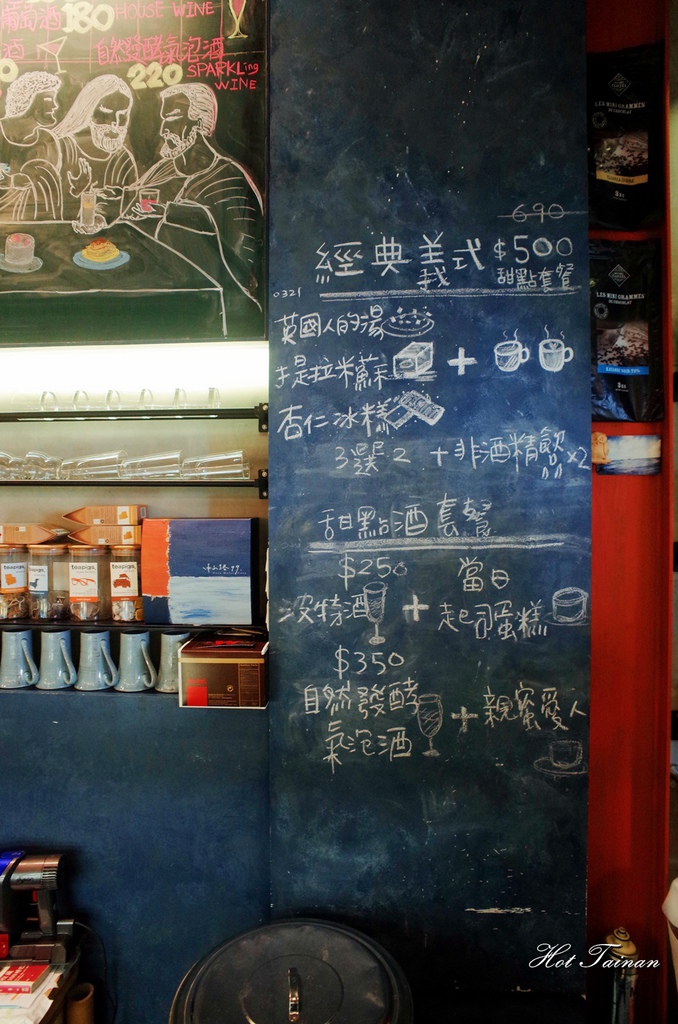 葡萄酒 180 HOUSE WINE
酒
自然發酵氣泡酒
220 SPARKLing
WINE
690
經典義式 $500
甜點套餐
0321
英國人的湯
提拉米蘇 +
杏仁冰糕
3選2 +非酒精飲品x2
甜點酒套餐
$250 當日
波特酒 + 起司蛋糕
$350
自然發酵
氣泡酒 + 親蜜愛人
LES MINI GRAMMES
LES MINI GRAMMES
teapigs.
teapigs.
teapigs.
Hot Tainan